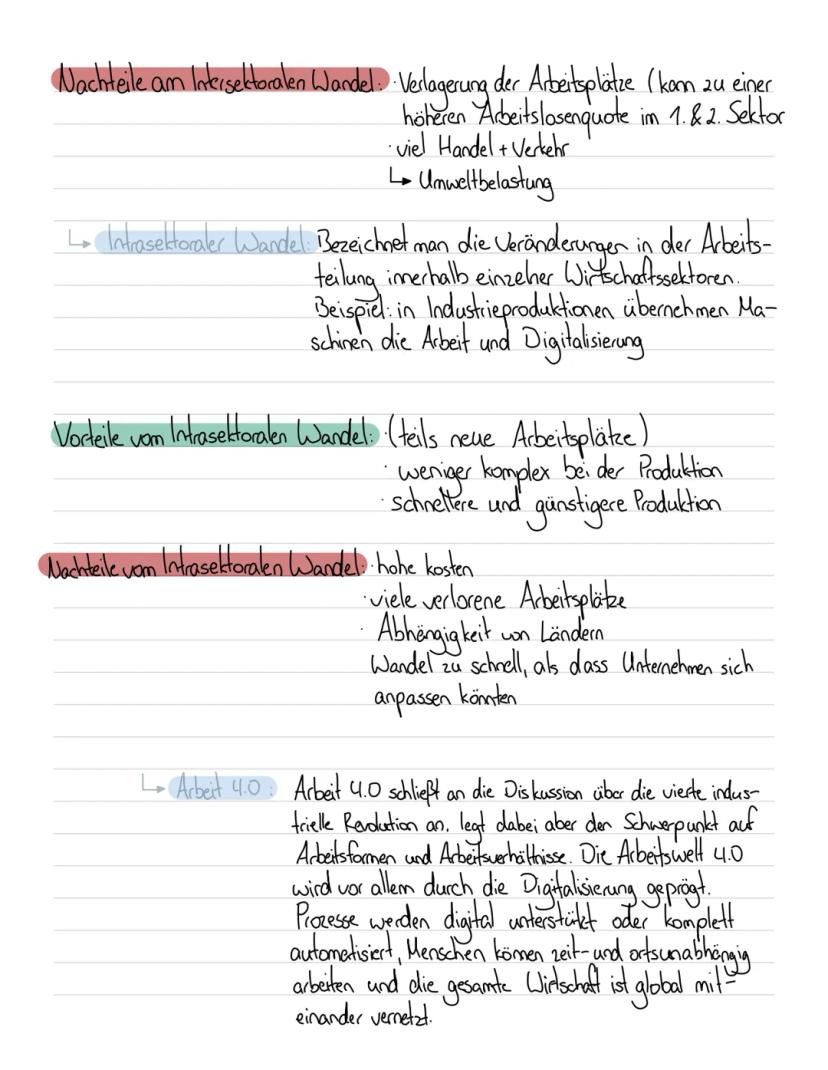 Nachteile am Intersektoralen Wandel: · Verlagerung der Arbeitsplätze (kann zu einer
höheren Arbeitslosenquote im 1. & 2. Sektor
· viel Handel + Verkehr
↳ Umweltbelastung
↳ Intrasektoraler Wandel: Bezeichnet man die Veränderungen in der Arbeits-
teilung innerhalb einzelner Wirtschaftssektoren.
Beispiel: in Industrieproduktionen übernehmen Ma-
schinen die Arbeit und Digitalisierung
Vorteile vom Intrasektoralen Wandel: · (teils neue Arbeitsplätze)
· weniger komplex bei der Produktion
· schnellere und günstigere Produktion
Nachteile vom Intrasektoralen Wandel: · hohe kosten
· viele verlorene Arbeitsplätze
· Abhängigkeit von Ländern
Wandel zu schnell, als dass Unternehmen sich
anpassen könnten
↳ Arbeit 4.0: Arbeit 4.0 schließt an die Diskussion über die vierte indus-
trielle Revolution an, legt dabei aber den Schwerpunkt auf
Arbeitsformen und Arbeitsverhältnisse. Die Arbeitswelt 4.0
wird vor allem durch die Digitalisierung geprägt.
Prozesse werden digital unterstützt oder komplett
automatisiert, Menschen können zeit- und ortsunabhängig
arbeiten und die gesamte Wirtschaft ist global mit-
einander vernetzt.